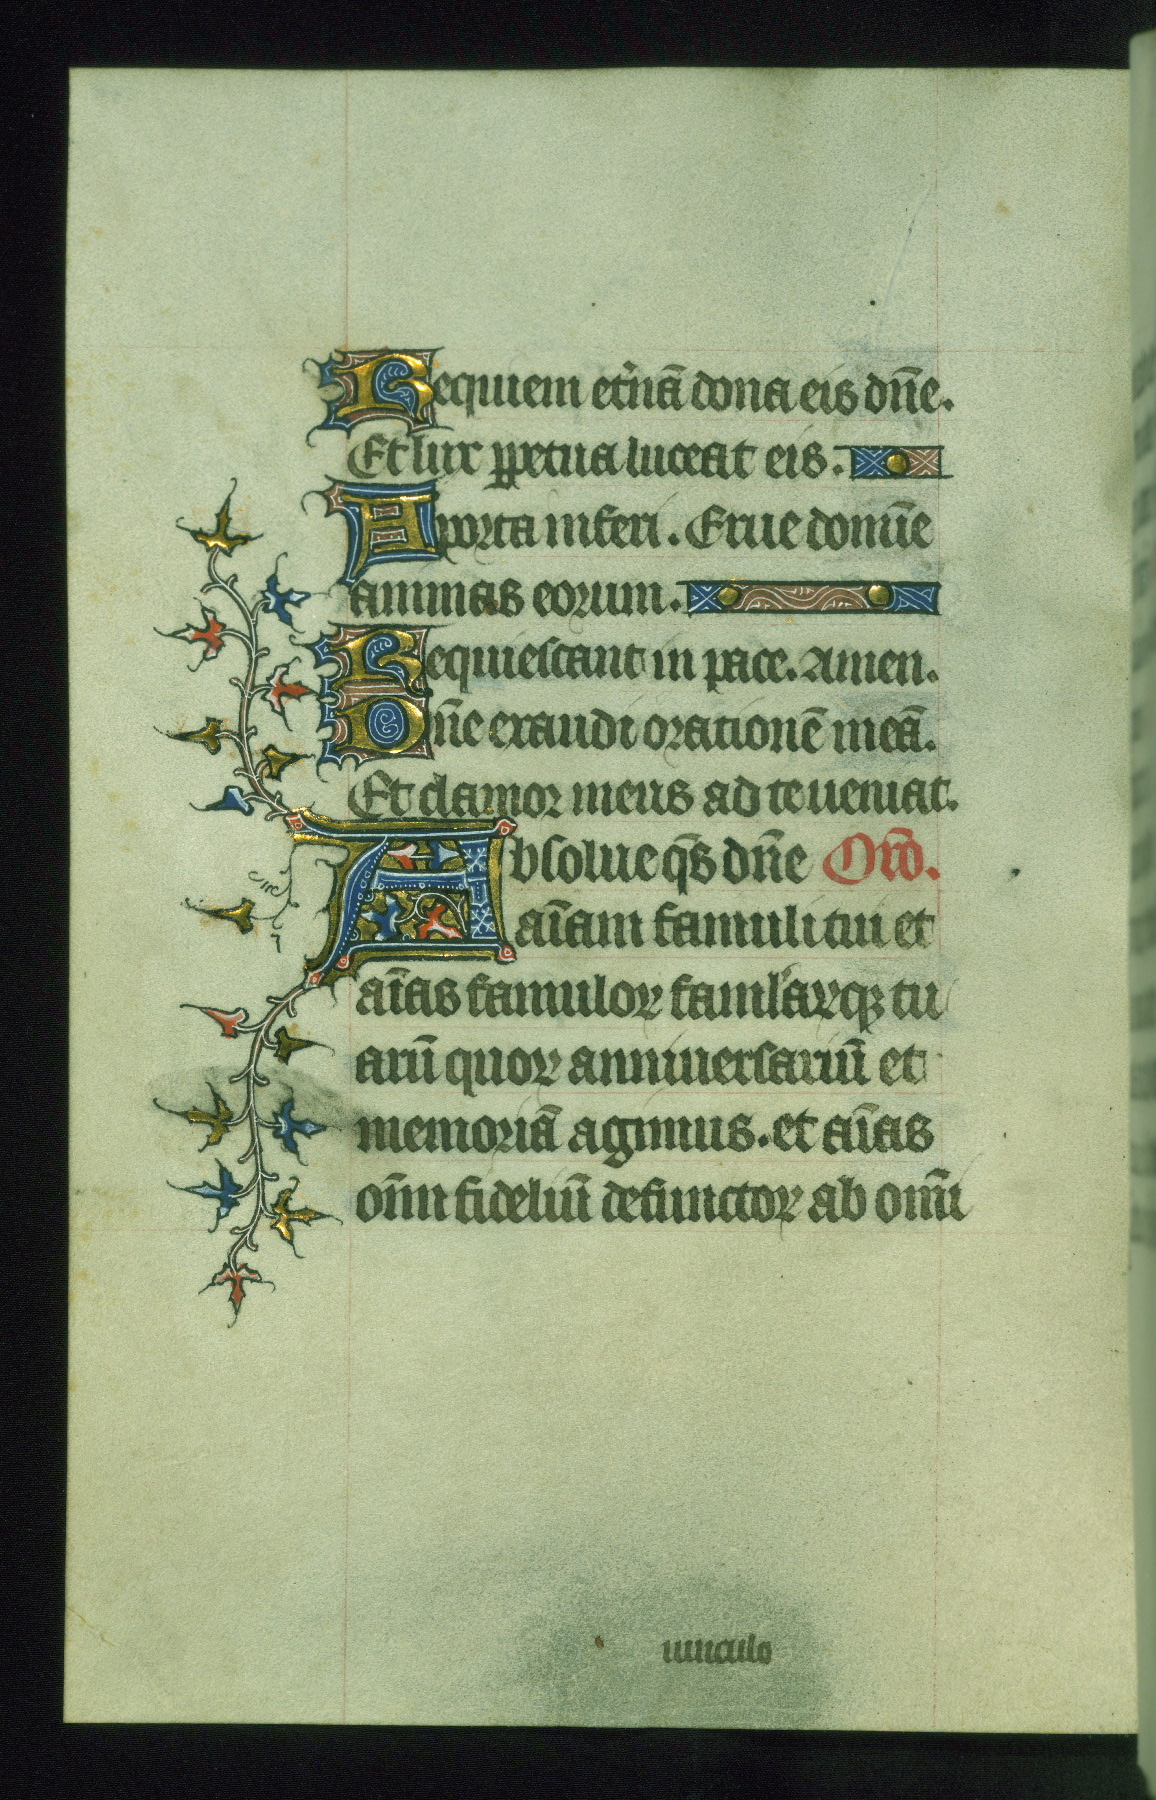 Requiem et̾nā dona eis dn̄e.
Et lux ꝑpetua luceat eis.
A porta inferi. Erue domīe
animas eorum.
Requiescant in pace. Amen.
Dn̄e exaudi orationē meā.
Et clamor meus ad te ueniat.
Absolue qs̄ dn̄e Orō.
aīam famuli tui et
aīas famuloꝝ faml'aꝝqꝫ tu
arū quoꝝ anniuersariū et
memoriā agimus. et aīas
om̄m fidelium̄ defunctoꝝ ab om̄i
uinculo